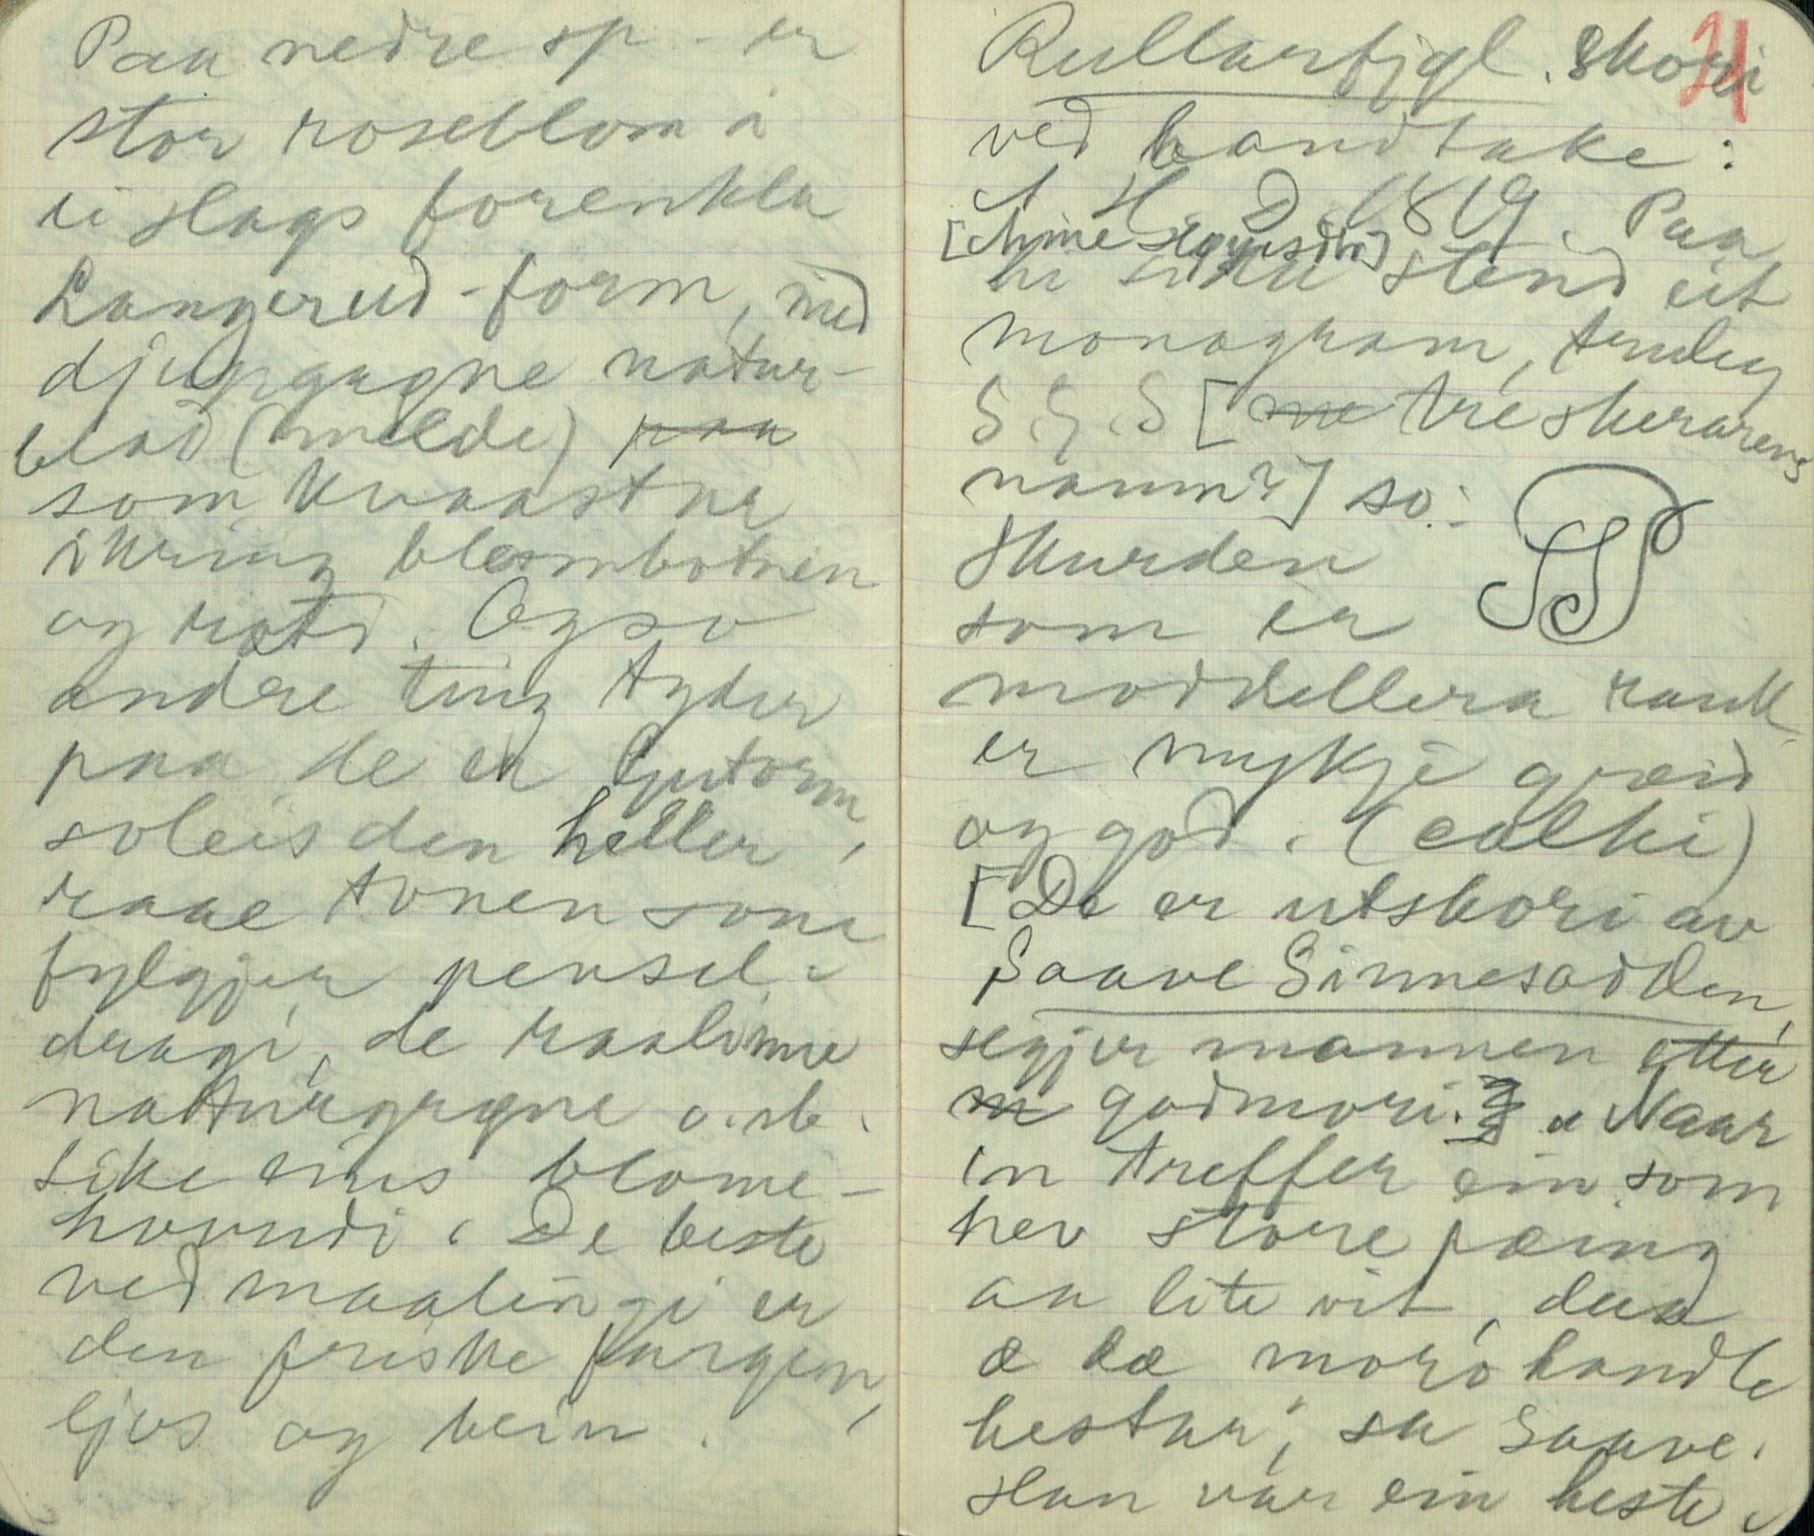 Paa nedre sp - er
stor roseblom i
ei slags forenkla
Langerud-form, med
djupgagne natur-
blad (milde) paa
som kvaastar
ikring blombotnen
og rotd. Ogso
andre ting tyder
paa de er Gutorm,
soleis den heller,
raae tonen som
fylgjer pensel-
dragi, de raalinne
naturgagne o.sb.
like eins blome-
hovudi. De beste
ved maalingi er
den friske fargen,
ljos og bein.
Rullarfjøl. Skori 21
ved handtake:
A H. D. 1819. Paa
[Anne Høgnisdtr]
hi sida stend eit
monogram, truleg
S.G.S [ treskerarens
namn?] so:
Skurden
som er
moddellera rank
er mykje greid
og god. (ealhi)
[De er utskori av
Saave Sinnesodden,
segjer mannen etter
godmori. "Naar
en treffer ein som
hev store pæing
aa lite vit, dæ
æ dæ moro handle
hestar", sa Saave.
Han var ein heste-